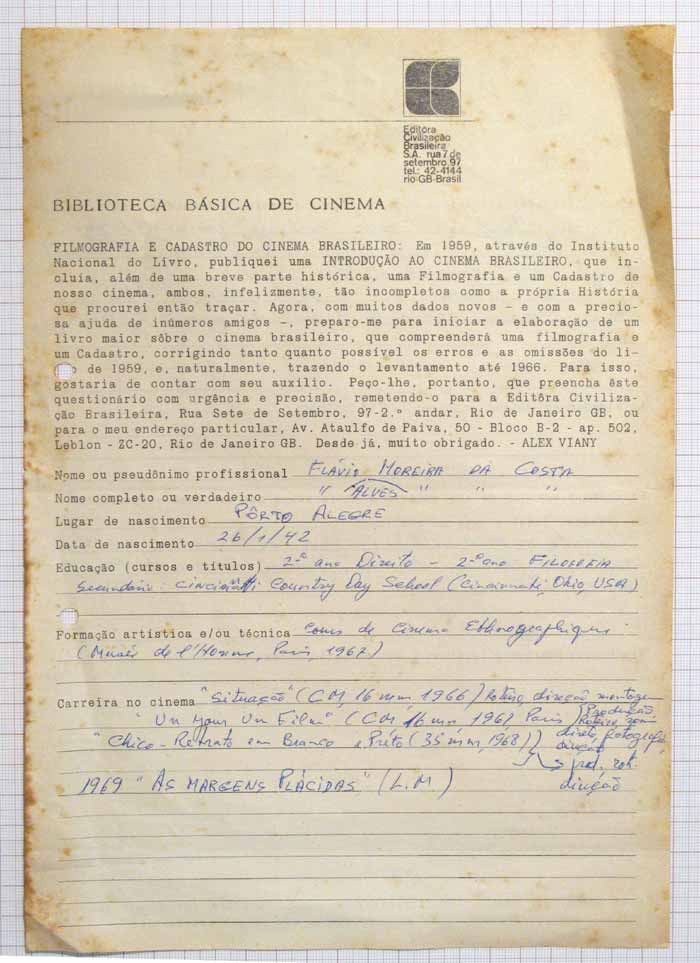 Editôra
Civilização
Brasileira
S.A. rua 7 de
setembro, 97
tel.: 42-4144
rio-GB-Brasil
BIBLIOTECA BÁSICA DE CINEMA
FILMOGRAFIA E CADASTRO DO CINEMA BRASILEIRO: Em 1959, através do Instituto
Nacional do Livro, publiquei uma INTRODUÇÃO AO CINEMA BRASILEIRO, que in-
cluia, além de uma breve parte histórica, uma Filmografia e um Cadastro de
nosso cinema, ambos, infelizmente, tão incompletos como a própria História
que procurei então traçar. Agora, com muitos dados novos - e com a precio-
sa ajuda de inúmeros amigos -, preparo-me para iniciar a elaboração de um
livro maior sôbre o cinema brasileiro, que compreenderá uma filmografia e
um Cadastro, corrigindo tanto quanto possível os erros e as omissões do li-
o de 1959, e, naturalmente, trazendo o levantamento até 1966. Para isso,
gostaria de contar com seu auxílio. Peço-lhe, portanto, que preencha êste
questionário com urgência e precisão, remetendo-o para a Editôra Civiliza-
ção Brasileira, Rua Sete de Setembro, 97-2.º andar, Rio de Janeiro GB, ou
para o meu endereço particular, Av. Ataulfo de Paiva, 50 - Bloco B-2 - ap. 502,
Leblon - ZC-20, Rio de Janeiro GB. Desde já, muito obrigado. - ALEX VIANY
Nome ou pseudônimo profissional FLÁVIO MOREIRA DA COSTA
Nome completo ou verdadeiro " ALVES " " "
Lugar de nascimento PÔRTO ALEGRE
Data de nascimento 26/1/42
Educação (cursos e títulos) 2º ano Direito - 2º ano FILOSOFIA
Secundário: Cincinnatti Country Day School (Cincinnati, Ohio, USA)
Formação artística e/ou técnica Cours de Cinema Ethnographique
(Museé de l'Homme, Paris, 1967)
Carreira no cinema "Situação" (CM, 16 mm, 1966) Roteiro, direção montagem
"Un Jour Un Film" (CM 16 mm 1967 Paris) Produção
Roteiro
"Chico - Retrato em Branco e Prêto (35 mm, 1968) fotografia
direção
1969 "AS MARGENS PLÁCIDAS" (L.M) direção